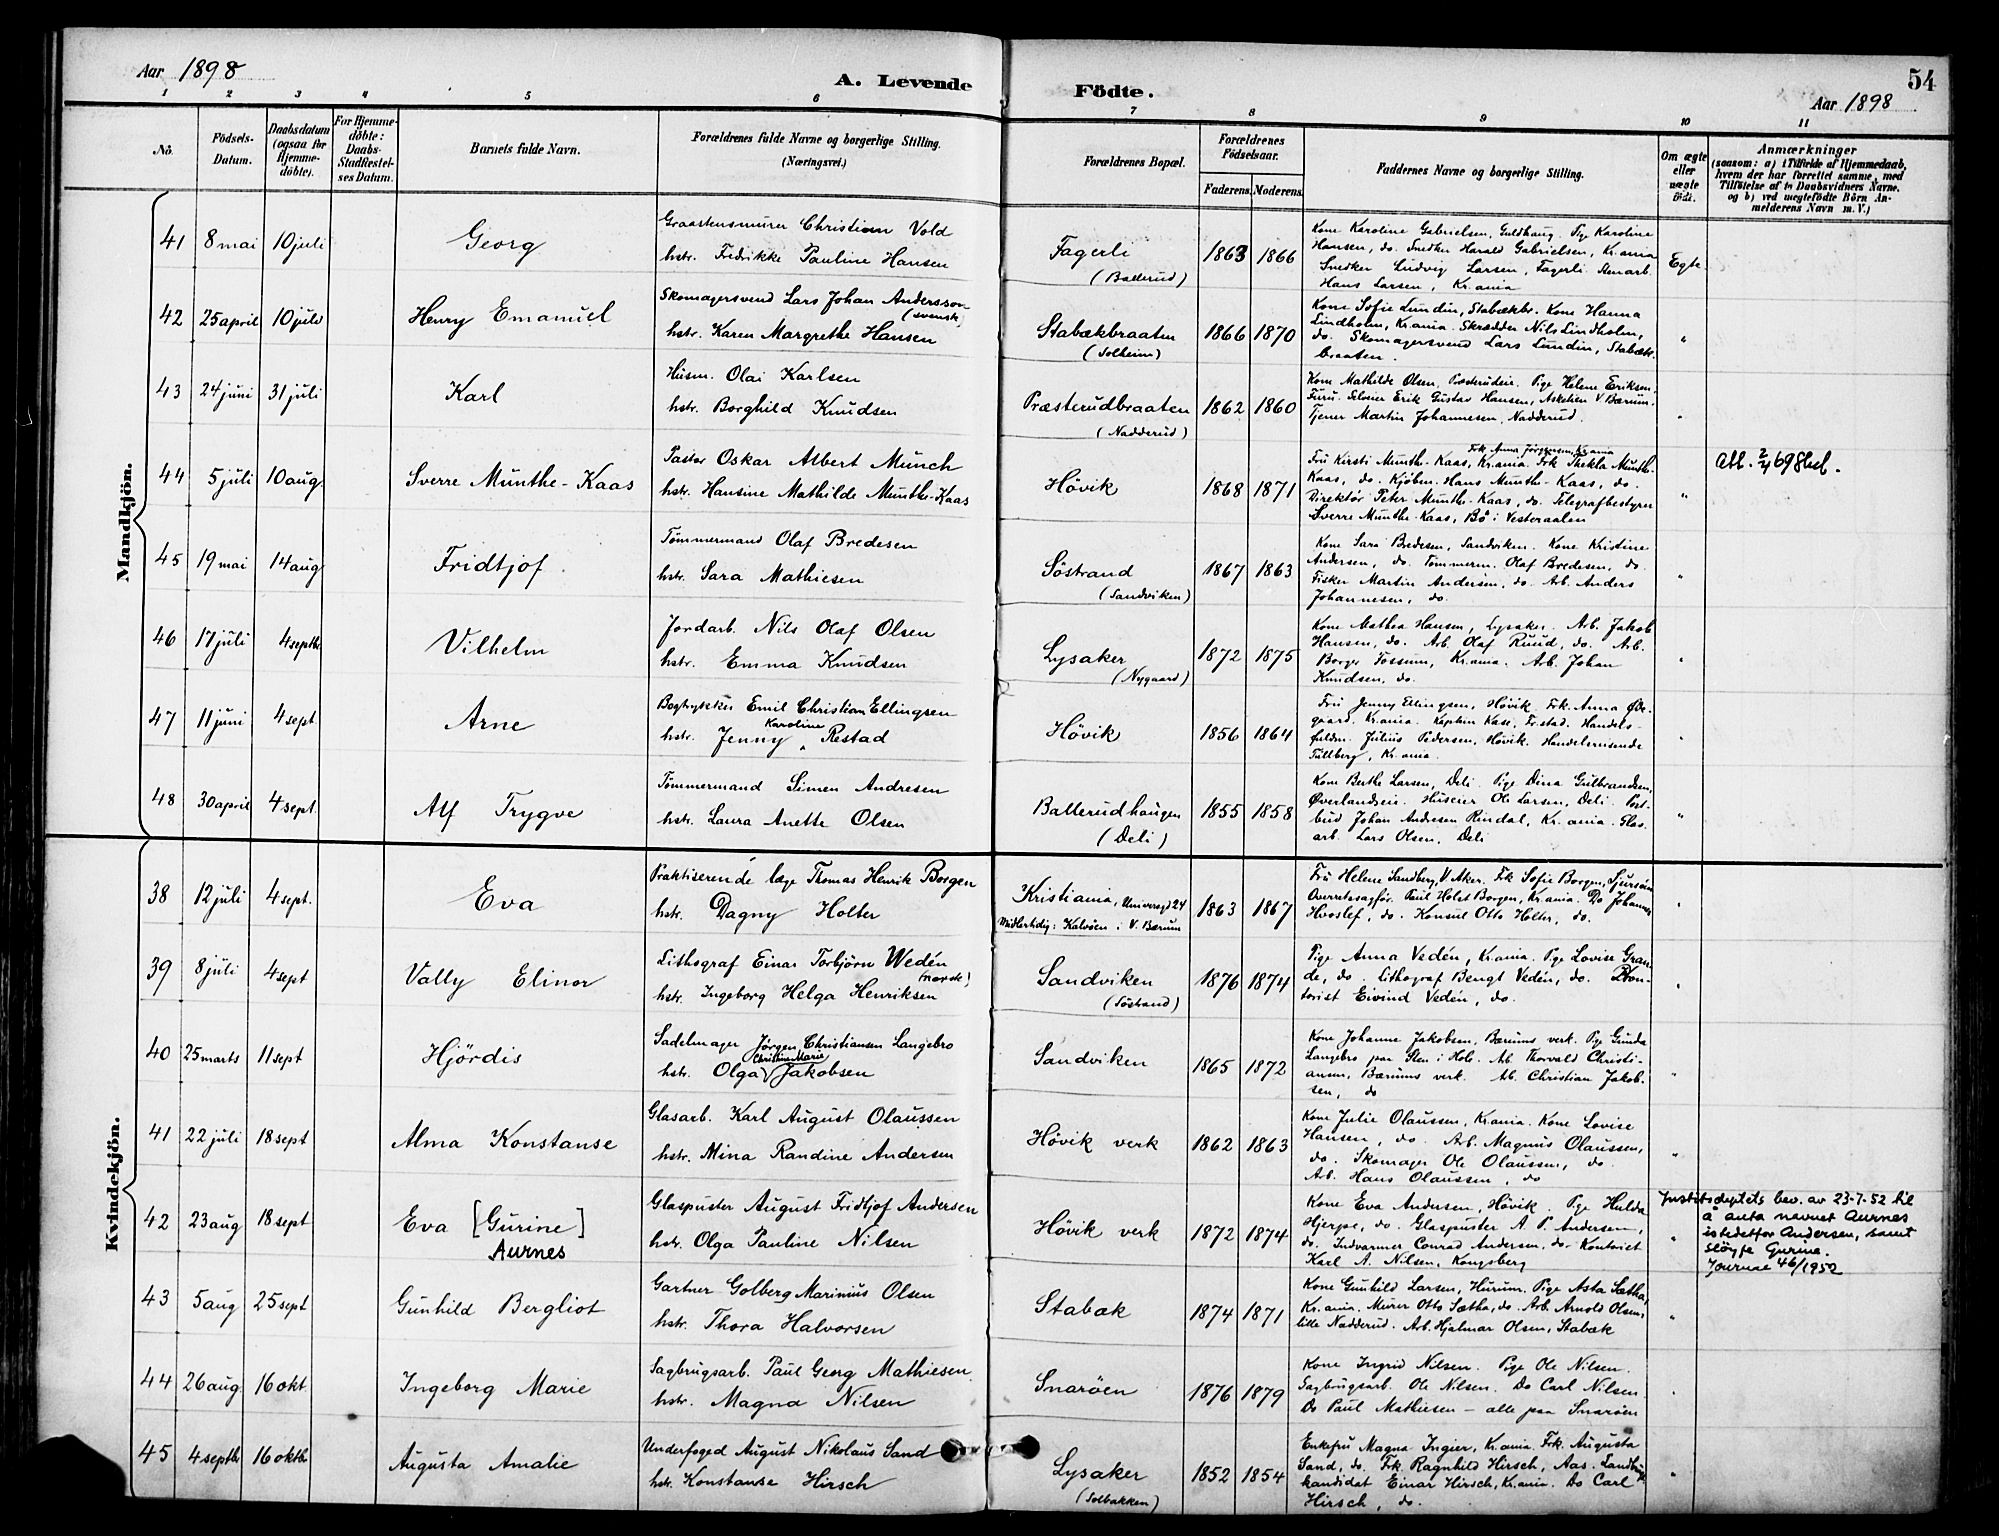 Aar 1898
A. Levende Födte.
54
Aar 1898
1 2 3 4 5 6 7 8 9 10 11
No.
Födsels-Datum.
Daabsdatum (ogsaa for Hjemme-döbte).
For Hjemme-döbte: Daabs-Stadfæstel-ses Datum.
Barnets fulde Navn.
Forældrenes fulde Navne og borgerlige Stilling.
(Næringsvei.)
Forældrenes Bopæl.
Forældrenes Födselsaar.
Faderens. Moderens.
Faddernes Navne og borgerlige Stilling.
Om ægte eller uægte född.
Anmærkninger
(saasom: a) i Tilfælde af Hjemmedaab, hvem der har forrettet samme, med Tilföielse af to Daabsvidners Navne. og b) ved uægtefödte Börn An-melderens Navn m. V.)
Mandkjön.
41 8 mai 10 juli Georg
Graastensmurer Christian Vold
hstr. Fredrikke Pauline Hansen
Fagerli
(Ballerud)
1863 1866
Kone Karoline Gabrielsen, Guldhaug. Pige Karoline
Hansen, do. Snedker Harald Gabrielsen, Kr.ania
Snedker Ludvig Larsen, Fagerli. Stenarb.
Hans Larsen, Kr.ania
Egte
42 25 april 10 juli Henry Emanuel
Skomagersvend Lars Johan Andersson
(svensk)
hstr. Karen Margrethe Hansen
Stabækbraaten
(Solheim)
1866 1870
Kone Sofie Lundin, Stabækbr. Kone Hanna
Lindholm, Kr.ania. Skrædder Nils Lindholm,
do. Skomagersvend Lars Lundin, Stabæk-
braaten.
"
43 24 juni 31 juli Karl
Husm. Olai Karlsen
hstr. Borghild Knudsen
Præsterudbraaten
(Nadderud)
1862 1860
Kone Mathilde Olsen, Præsterudeie. Pige Helene Eriksen,
Furu. Erik Gustav Hansen, V. Bærum.
Tjener Martin Johannesen, Nadderud.
"
44 5 juli 10 aug Sverre Munthe-Kaas
Pastor Oskar Albert Munch
hstr. Hansine Mathilde Munthe-Kaas
Hövik
1868 1871
Frk Anna Jørgensen, Kr.ania
Fru Kirsti Munthe-Kaas, Kr.ania. Frk Thekla Munthe-
Kaas, do. Kjöbm. Hans Munthe-Kaas, do.
Direktör Peter Munthe-Kaas, do. Telegrafbestyrer
Sverre Munthe-Kaas, Bö i Vesteraalen
"
45 19 mai 14 aug Fridtjof
Tömmermand Olaf Bredesen
hstr. Sara Mathiesen
Söstrand
(Sandviken)
1867 1863
Kone Sara Bredesen, Sandviken. Kone Kristine
Andersen, do. Tömmerm. Olaf Bredesen, do.
Fisker Martin Andersen, do. Arb. Anders
Johannesen, do.
"
46 17 juli 4 septbr Vilhelm
Jordarb. Nils Olaf Olsen
hstr. Emma Knudsen
Lysaker
(Nygaard)
1872 1875
Kone Mathea Hansen, Lysaker. Arb. Jakob
Hansen, do. Arb. Olaf Ruud, do. Arb.
Borger Fossum, Kr.ania. Arb. Johan
Knudsen, do.
"
47 11 juni 4 sept Arne
Bogtrykker Emil Christian Ellingsen
Karoline
hstr. Jenny Restad
Hövik
1856 1864
Fru Jenny Ellingsen, Hövik. Frk. Anna Øde-
gaard, Kr.ania. Kaptein Kase, Fr.stad. Handels-
fuldm. Julius Pedersen, Hövik. Handelsreisende
Tullberg, Kr.ania.
"
48 30 april 4 sept. Alf Trygve
Tömmermand Simen Andresen
hstr. Laura Anette Olsen
Ballerudhaugen
(Deli)
1855 1858
Kone Berthe Larsen, Deli. Pige Dina Gulbrandsen,
Øverlandseie. Huseier Ole Larsen, Deli. Post-
bud Johan Andresen Rindal, Kr.ania. Glas-
arb. Lars Olsen, Deli
"
Kvindekjön.
38 12 juli 4 sept. Eva
Praktiserende læge Thomas Henrik Borgen
hstr. Dagny Holter
Kristiania, Universgd 24
Midlertidig: Kalvöen i V. Bærum
1863 1867
Fru Helene Sandberg, V. Aker. Frk Sofie Borgen,
Overretssagför. Paul Holst Borgen, Kr.ania. Do Johannes
Hvoslef, do. Konsul Otto Holter, do.
"
39 8 juli 4 sept Vally Elinor
Lithograf Einar Torbjörn Wedén
(norsk)
hstr. Ingeborg Helga Henriksen
Sandviken
(Söstrand)
1876 1874
Pige Anna Vedén, Kr.ania. Pige Lovise Gran-
de, do. Lithograf Bengt Vedén, do. Kon-
torist Eivind Vedén, do.
"
40 25 marts 11 sept Hjördis
Sadelmager Jörgen Christiansen Langebro
Christine Marie
hstr. Olga Jakobsen
Sandviken
1865 1872
Kone Johanne Jakobsen, Bærums verk. Pige Gunda
Langbro paa Sten i Hole. Ab. Thorvald Christi-
ansen, Bærums verk. Ab. Christian Jakob-
sen, do
"
41 22 juli 18 sept Alma Konstanse
Glasarb. Karl August Olaussen
hstr. Mina Randine Andersen
Hövik verk
1862 1863
Kone Julie Olaussen, Kr.ania. Kone Lovise
Hansen, do. Arb. Magnus Olaussen,
do. Skomager Ole Olaussen, do.
Arb. Hans Olaussen, do
"
42 23 aug 18 sept Eva [Gurine]
Aurnes
Glaspuster August Fridtjof Andersen
hstr. Olga Pauline Nilsen
Hövik verk
1872 1874
Kone Eva Andersen, Hövik. Pige Hulda
Hjerpe, do. Glaspuster A. P. Andersen,
do. Indvarmer Conrad Andersen, do. Kontorist
Karl A. Nilsen, Kongsberg
"
Justitsdeptets bev. av 23-7-52 til
å anta navnet Aurnes
istedetfor Andersen, samt
sløyfe Gurine.
Journal 46/1952
43 5 aug 25 sept Gunhild Bergliot
Gartner Golberg Marinius Olsen
hstr. Thora Halvorsen
Stabæk
1874 1871
Kone Gunhild Larsen, Hurum. Pige Asta Sætha,
Kr.ania. Murer Otto Sætha, do. Arb. Arnold Olsen,
lille Nadderud. Arb. Hjalmar Olsen, Stabæk
"
44 26 aug. 16 okt. Ingeborg Marie
Sagbrugsarb. Paul Georg Mathiesen
hstr. Magna Nilsen
Snaröen
1876 1879
Kone Ingrid Nilsen. Pige Ole Nilsen.
Sagbrugsarb. Ole Nilsen. Do Carl Nilsen
Do Paul Mathiesen - alle paa Snaröen
"
45 4 septbr 16 oktbr Augusta Amalie
Underfoged August Nikolaus Sand
hstr. Konstanse Hirsch
Lysaker
(Solbakken)
1852 1854
Enkefru Magna Ingier, Kr.ania. Frk. Augusta
Sand, do. Frk Ragnhild Hirsch, Aas. Landbr.
kandidat Einar Hirsch, Kr.ania. Do Carl
Hirsch, do.
"